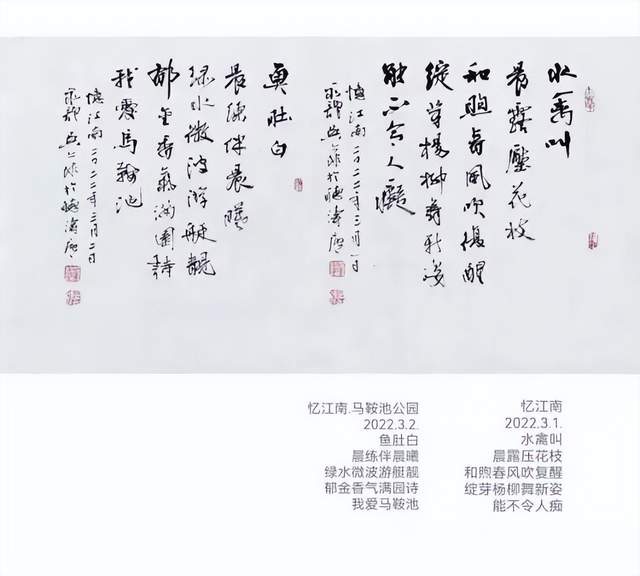 水禽叫
晨露壓花枝
和煦春風吹復醒
綻芽楊柳舞新姿
能不令人癡
憶江南二〇二二年三月一日
魚肚白
晨練伴晨曦
綠水微波游艇靚
郁金香氣滿園詩
我愛馬鞍池
憶江南二〇二二年三月二日
忆江南
2022.3.1.
水禽叫
晨露压花枝
和煦春风吹复醒
绽芽杨柳舞新姿
能不令人痴
忆江南.马鞍池公园
2022.3.2.
鱼肚白
晨练伴晨曦
绿水微波游艇靓
郁金香气满园诗
我爱马鞍池